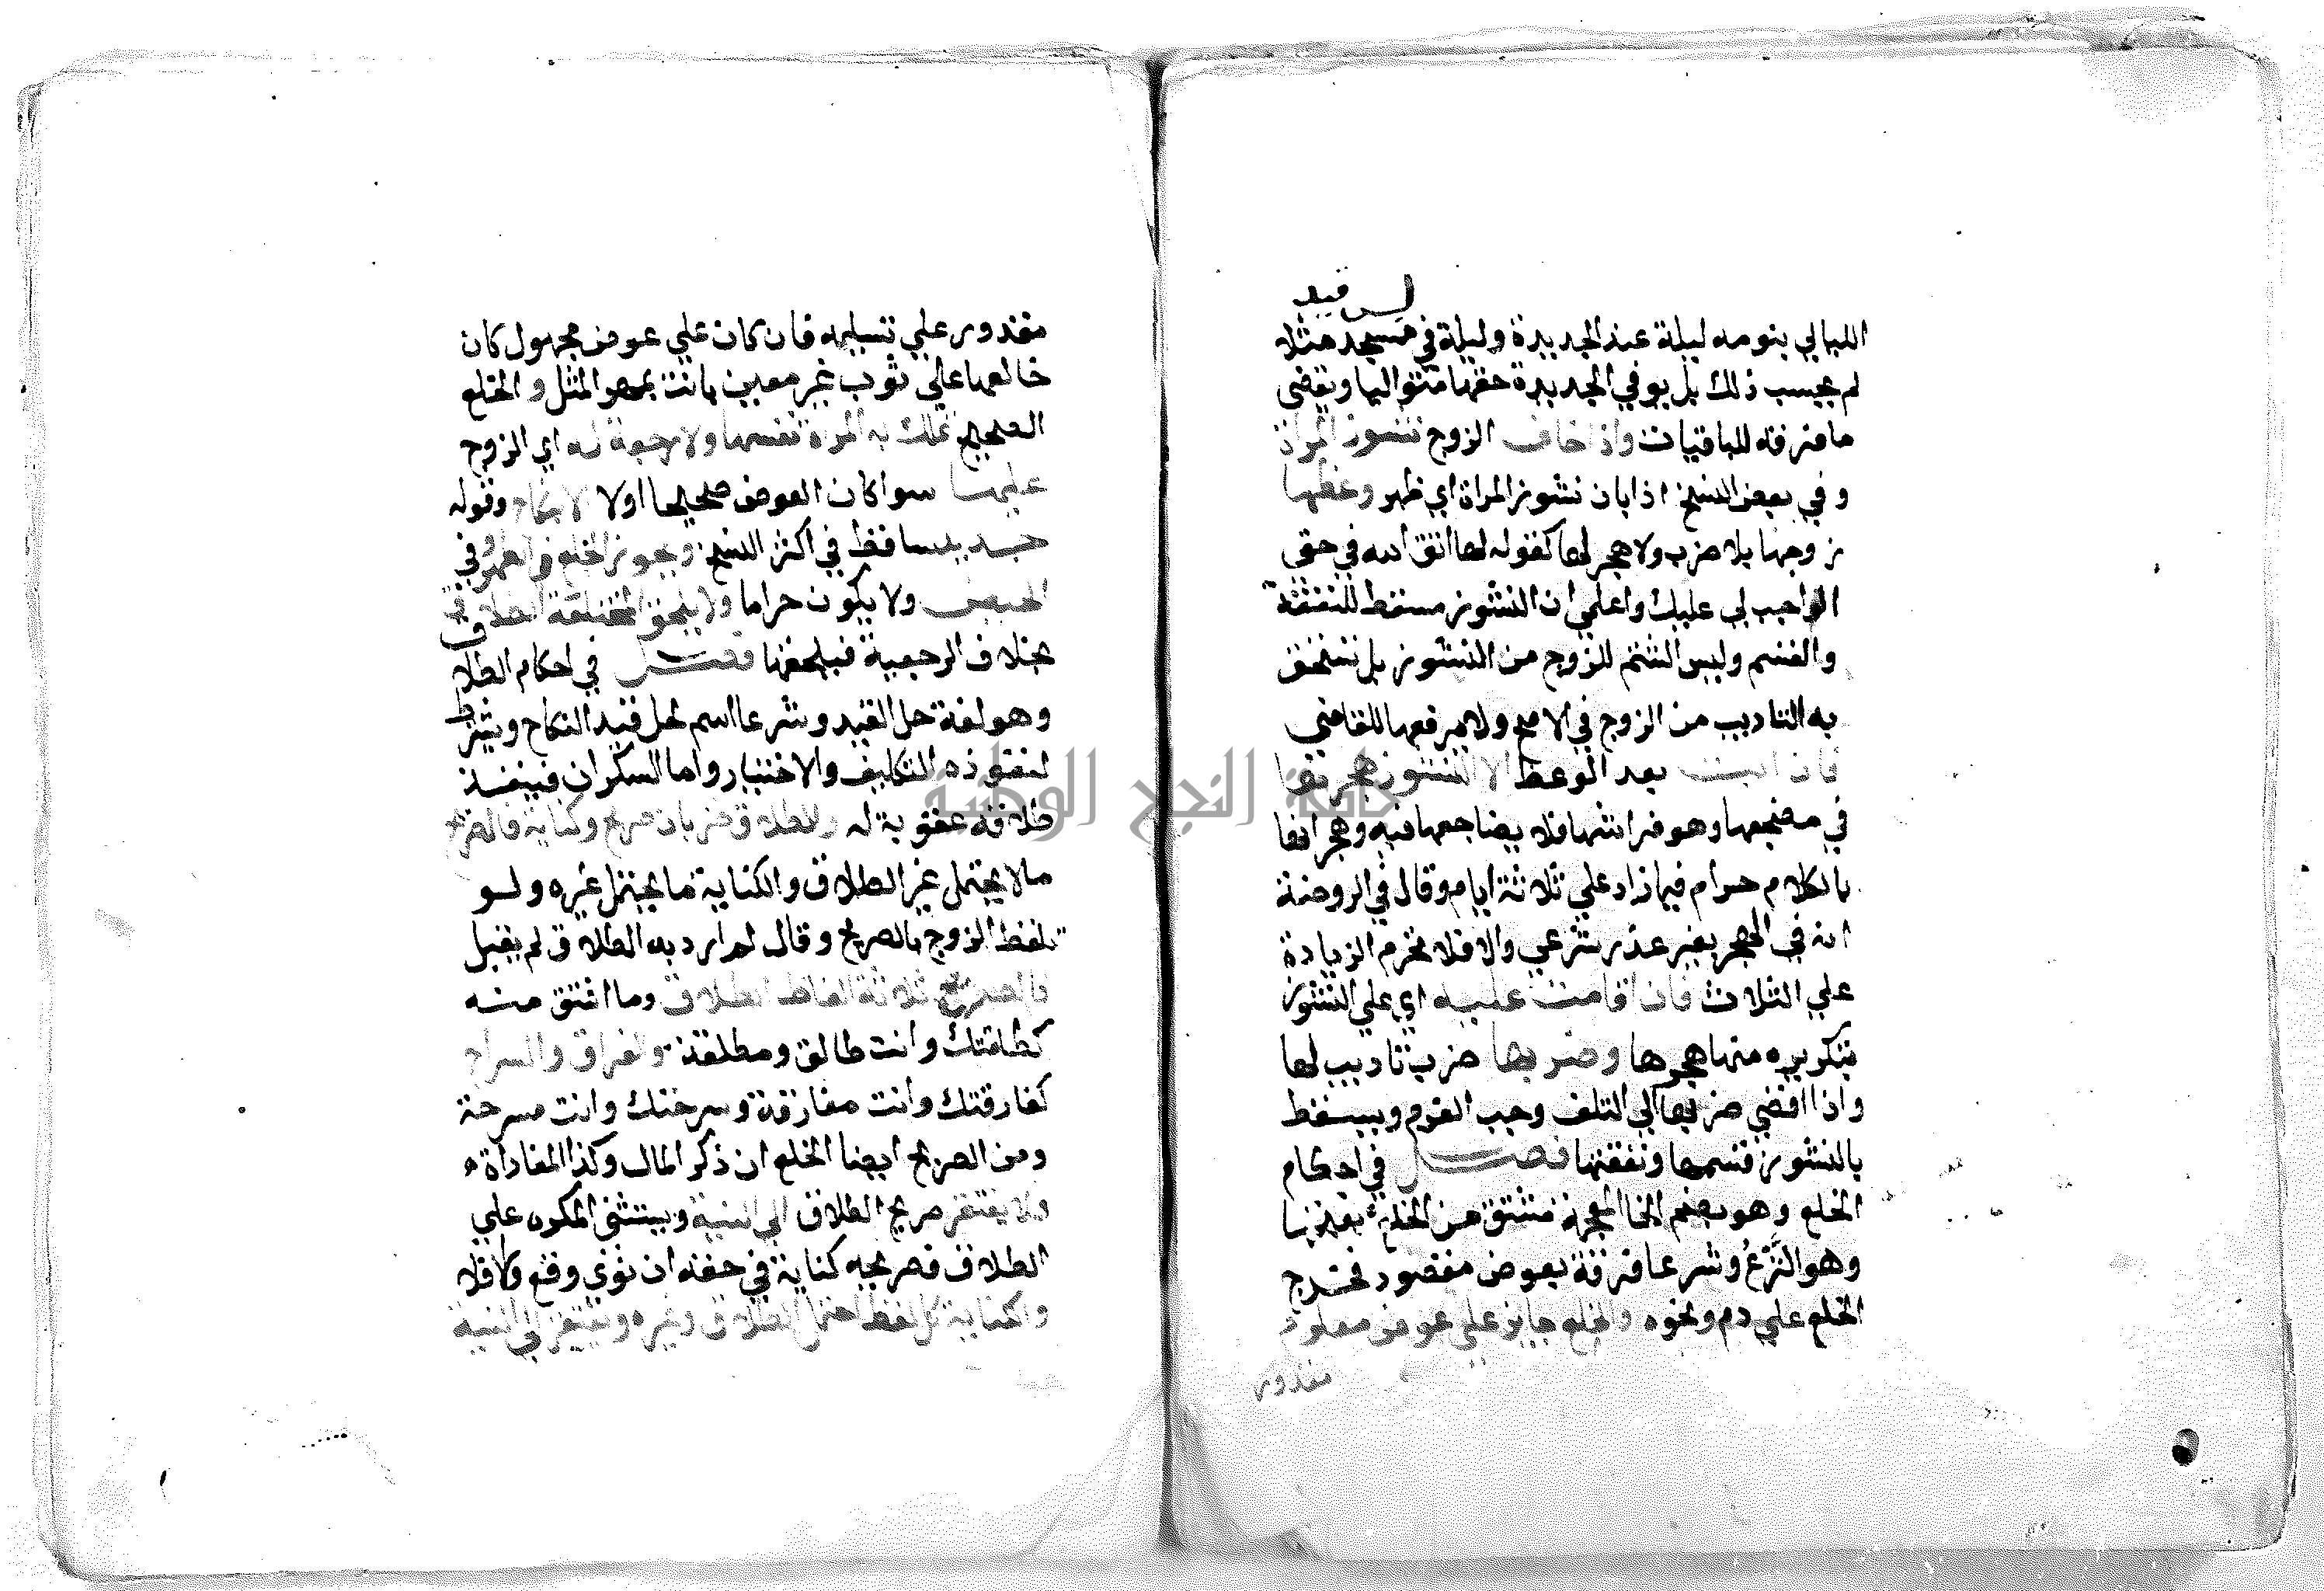 ليس قيد
الليالي بنومه ليلة عند الجديدة وليلة في مسجد مثلا
لم يحسب ذلك بل يوفي الجديدة حقها متواليا ويقضي
ما فرقه للباقيات واذا خاف الزوج نشوز المراة
وفي بعض النسخ اذا بان نشوز المراة اي ظهر وعظها
زوجها بلا ضرب ولا هجر لها كقوله لها اتق الله في حقي
الواجب لي عليك واعلمي ان النشوز مسقط للنفقة
والقسم وليس الشتم للزوج من النشوز بل تستحق
به التاديب من الزوج في الاصح ولا يرفعها للقاضي
فان ابت بعد الوعظ الا النشوز هجرها
في مضجعها وهو فراشها فلا يضاجعها فيه وهجرانها
بالكلام حرام فيما زاد على ثلاثة ايام وقال في الروضة
انه في الهجر بغير عذر شرعي والا فلا تحرم الزيادة
علي الثلاث فان اقامت عليه اي علي النشوز
بتكريره منها هجرها وضربها ضرب تاديب لها
واذا افضي ضربها الي التلف وجب الغرم ويسقط
بالنشوز قسمها ونفقتها فصل في احكام
الخلع وهو بضم الخا المعجمة مشتق من الخلع بفتحها
وهو النَّزْعُ وشرعا فرقة بعوض مقصود فخرج
الخلع علي دم ونحوه والخلع جايز علي عوض معلوم
مقدور
مقدور علي تسليمه فان كان علي عوض مجهول كان
خالعها علي ثوب غير معين بانت بمهر المثل والخلع
الصحيح تملك به المراة نفسها ولا رجعة له اي الزوج
عليها سوا كان العوض صحيحا اولا الا بنكاح وقوله
جديد ساقط في اكثر النسخ ويجوز الخلع في الطهر وفي
الحيض ولا يكون حراما ولا يلحق المختلعة الطلاق
بخلاف الرجعية فيلحقها فصل في احكام الطلاق
وهو لغة حل القيد وشرعا اسم لحل قيد النكاح ويشترط
لنفوذه التكليف والاختيار واما السكران فينفذ
طلاقه عقوبة له والطلاق ضربان صريح وكناية فالصريح
ما لا يحتمل غير الطلاق والكناية ما يحتمل غيره ولو
تلفظ الزوج بالصريح وقال لم ارد به الطلاق لم يقبل
فالصريح ثلاثة الفاظ الطلاق وما اشتق منه
كطلقتك وانت طالق ومطلقة والفراق والسراح
كفارقتك وانت مفارقة وسرحتك وانت مسرحة
ومن الصريح ايضا الخلع ان ذكر المال وكذا المفاداة
ولا يفتقر صريح الطلاق الي النية ويستثني المكره علي
الطلاق فصريحه كناية في حقه ان نوي وقع والا فلا
والكناية كل لفظ احتمل الطلاق وغيره وتفتقر الي النية
خانة النجح الوطنية